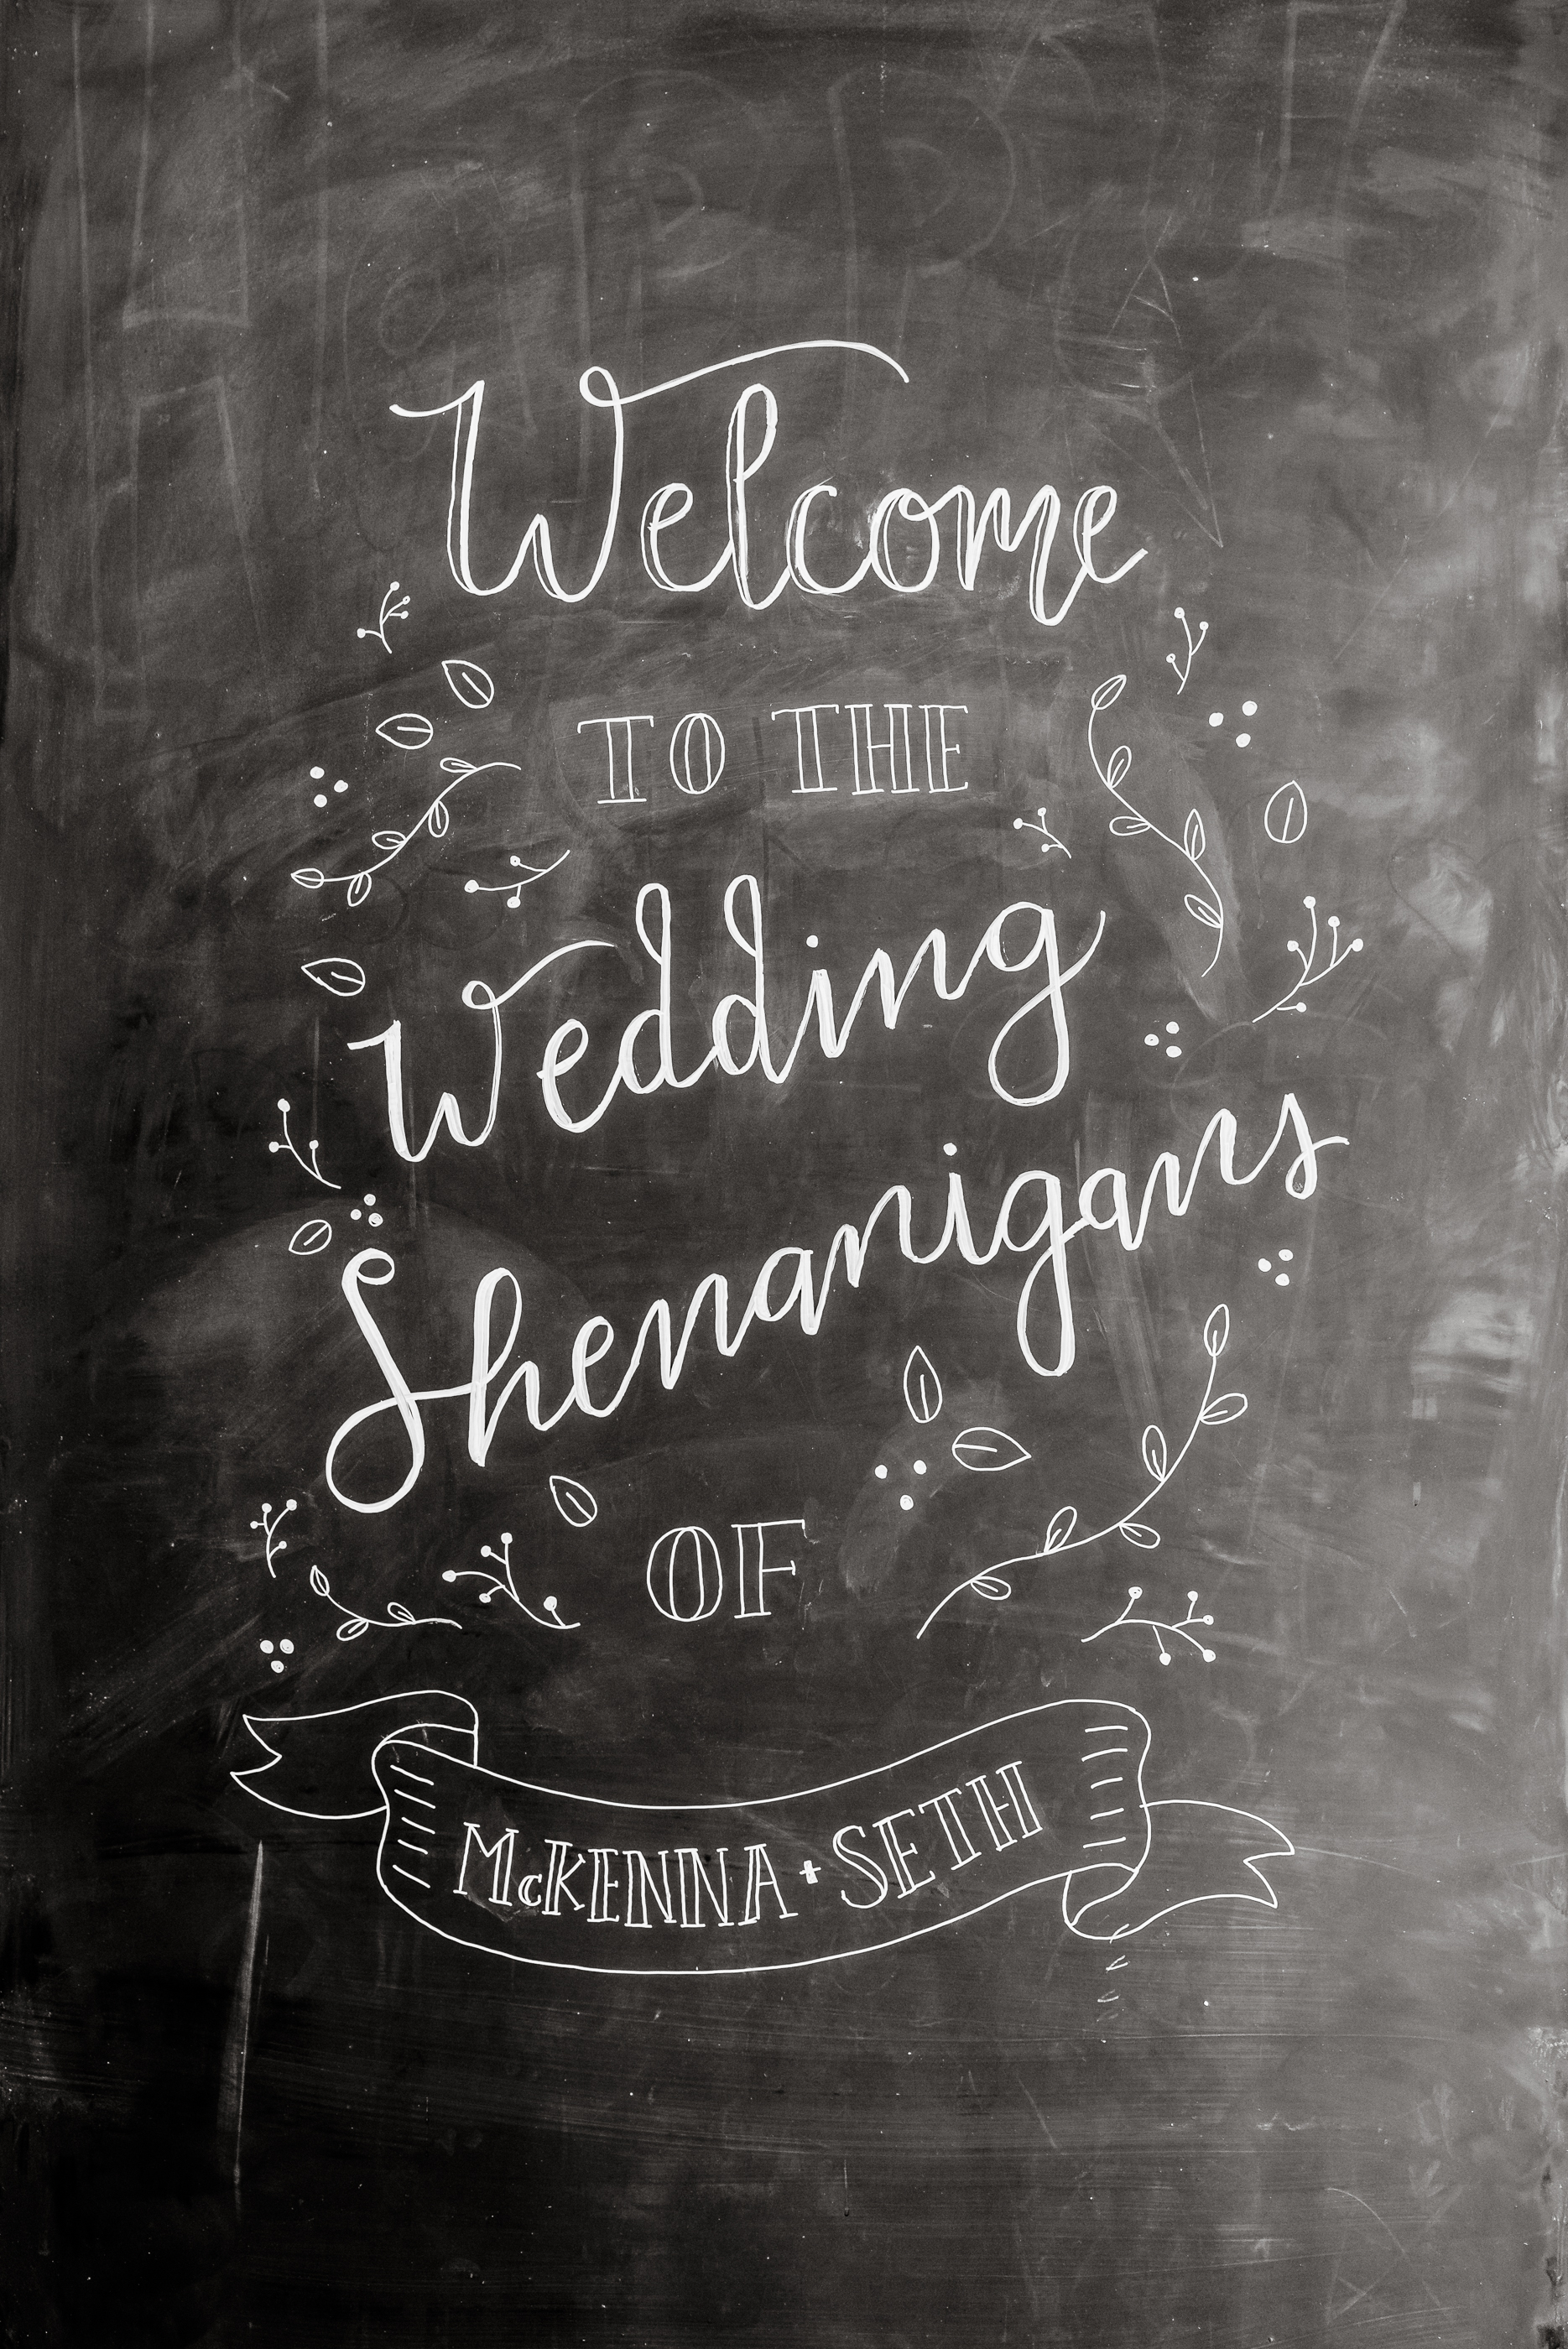 Welcome
TO THE
Wedding
Shenanigans
OF
McKENNA + SETH